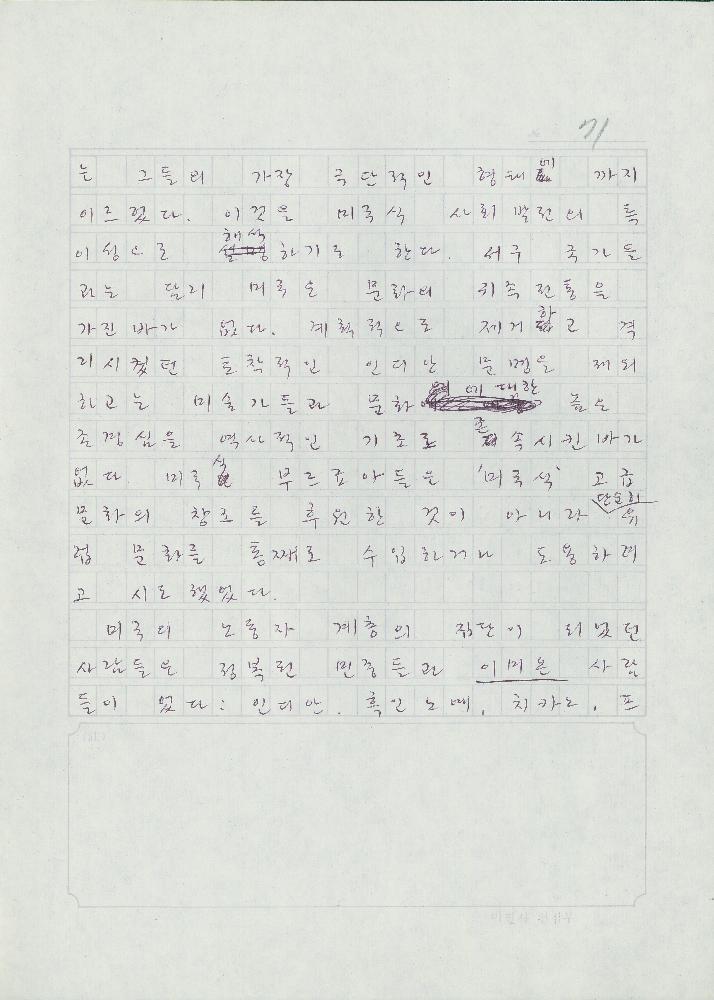 71
는 그들의 가장 극단적인 형태에 까지
이르렀다. 이것을 미국식 사회 발전의 특
이성으로 해석하기로 한다. 서구 국가들
과는 달리 미국은 문화의 귀족전통을
가진 바가 없다. 계획적으로 제거하고 격
리시켰던 토착적인 인디안 문명을 제외
하고는 미술가들과 문화에 대한 높은
존경심을 역사적인 기초로 존속시킨 바가
없다. 미국식 부르죠아들은 '미국식' 고급
문화의 창조를 후원한 것이 아니라 단순히 유
럽 문화를 통째로 수입하거나 도용하려
고 시도했었다.
미국의 노동자 계층의 집단이 되었던
사람들은 정복된 민중들과 이미 온 사람
들이 었다: 인디안, 흑인노예, 치카노, 프